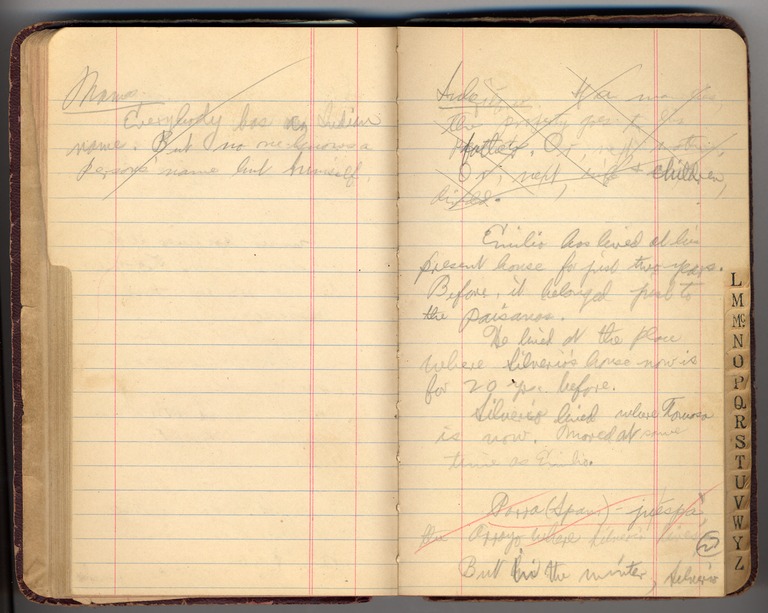 Names
Everybody has an Indian
name. But no one knows a
persons name but himself.
If a man dies,
the property goes to his
Father. Or, next, mother,
Or, next, wife & children,
Emilio has lived at his
present house for just two years.
Before, it belonged just to
the paisanos.
He lived at the place
where Silverio's house now is
for 20 yrs. before.
Silverio lived where Tomasa
is now. Moved at same
time as Emilio.
Porra (Span.) -
the Arroyo where Silverio lives.
But in the winter, Silverio
L
M
Mc
N
O
P
Q
R
S
T
U
V
W
Y
Z